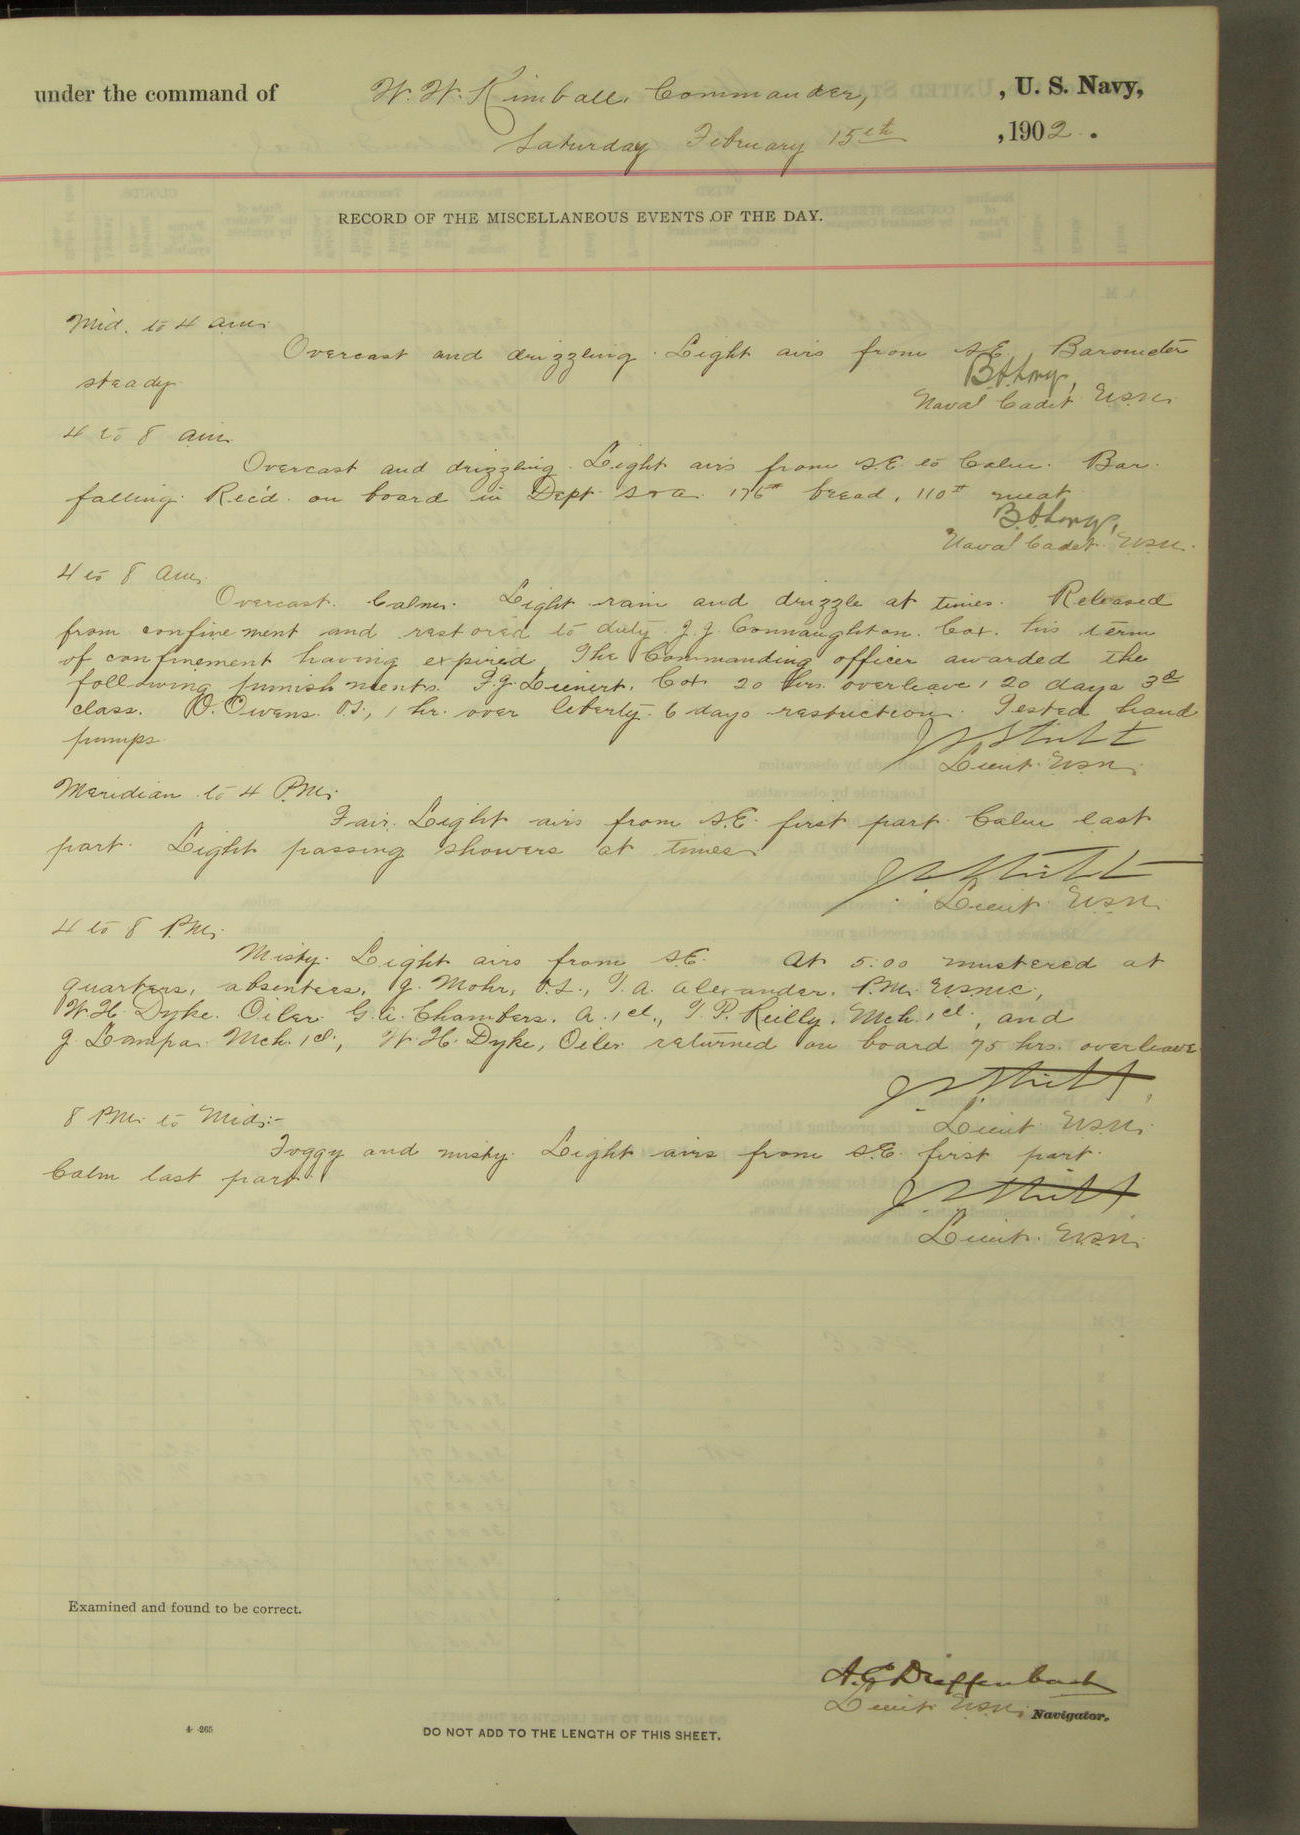 under the command of W. W. Kimball, Commander, , U. S. Navy,
Saturday February 15th , 1902.
RECORD OF THE MISCELLANEOUS EVENTS OF THE DAY.
Mid. to 4 a.m.
Overcast and drizzling. Light airs from S.E. Barometer
steady.
Naval Cadet U.S.N.
4 to 8 a.m.
Overcast and drizzling. Light airs from S.E. to Calm. Bar.
falling. Rec'd. on board in Dept. S & a. 176# bread, 110# meat
Naval Cadet U.S.N.
4 to 8 a.m.
Overcast. Calm. Light rain and drizzle at times. Released
from confinement and restored to duty J. J. Connaughton. Cox. his term
of confinement having expired. The Commanding officer awarded the
following punishments. F. J. Lienert. Cox 20 hrs. overleave, 20 days 3d
class. O. Owens. O.S., 1 hr. over liberty. 6 days restriction. Tested hand
pumps.
Lieut. U.S.N.
Meridian to 4 P.M.
Fair. Light airs from S.E. first part. Calm last
part. Light passing showers at times.
Lieut. U.S.N.
4 to 8 P.M.
Misty. Light airs from S.E. At 5.00 mustered at
quarters, absentees, J. Mohr, O.S., T. A. Alexander. P.M. U.S.M.C.,
W. H. Dyke. Oiler. G. A. Chambers. A. 1cl., T. P. Reilly. Mch. 1cl., and
J. Zampa. Mch. 1cl., W. H. Dyke, Oiler returned on board 75 hrs. overleave
Lieut. U.S.N.
8 P.M. to Mid:-
Foggy and misty. Light airs from S.E. first part.
Calm last part.
Lieut. U.S.N.
Examined and found to be correct.
A. C. Dieffenbach
Lieut. U.S.N. Navigator.
4-265
DO NOT ADD TO THE LENGTH OF THIS SHEET.